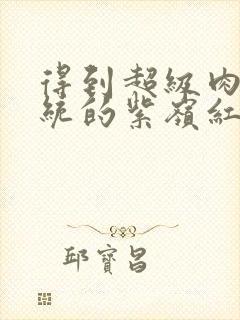 得到超級肉
統的紫嶺紅
邱寶昌